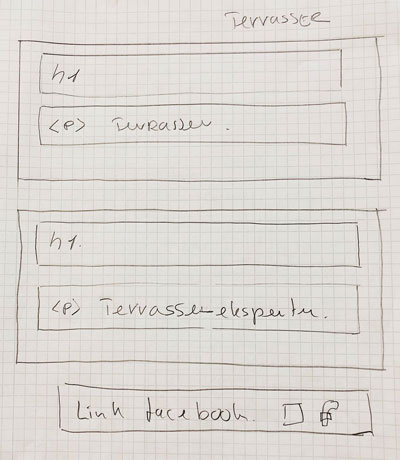 Terrasser
h1
<p> Terrasser.
h1.
<p> Terrasse-eksperter.
Link facebook.